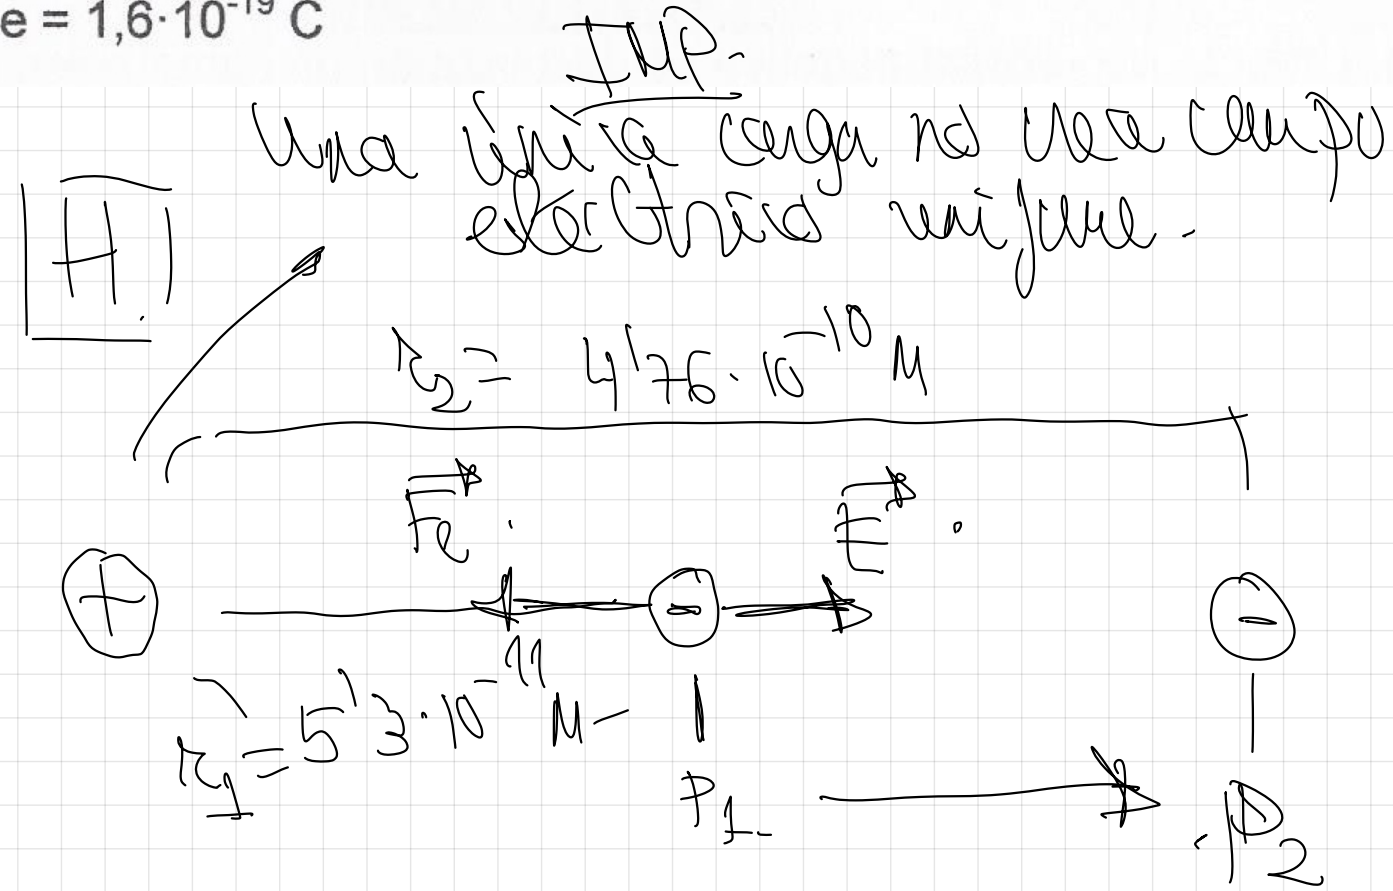 e = 1,6·10⁻¹⁹ C
IMP.
Una única carga no crea campo
eléctrico uniforme.
H
r₂ = 4'76·10⁻¹⁰ M
Fe
E
+
-
-
r₁ = 5'3·10⁻¹¹ M
P₁
P₂